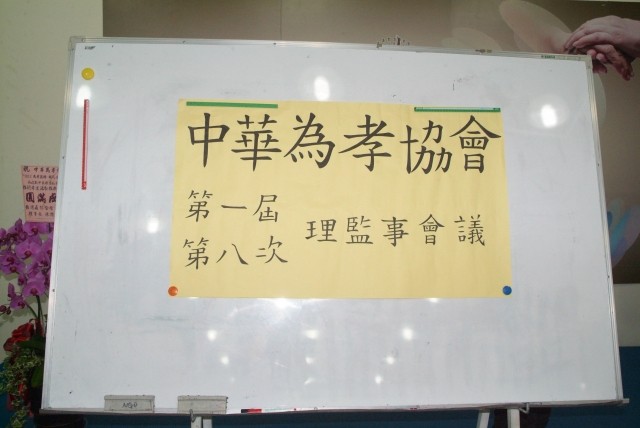 中華為孝協會
第一屆
第八次
理監事會議
圓滿